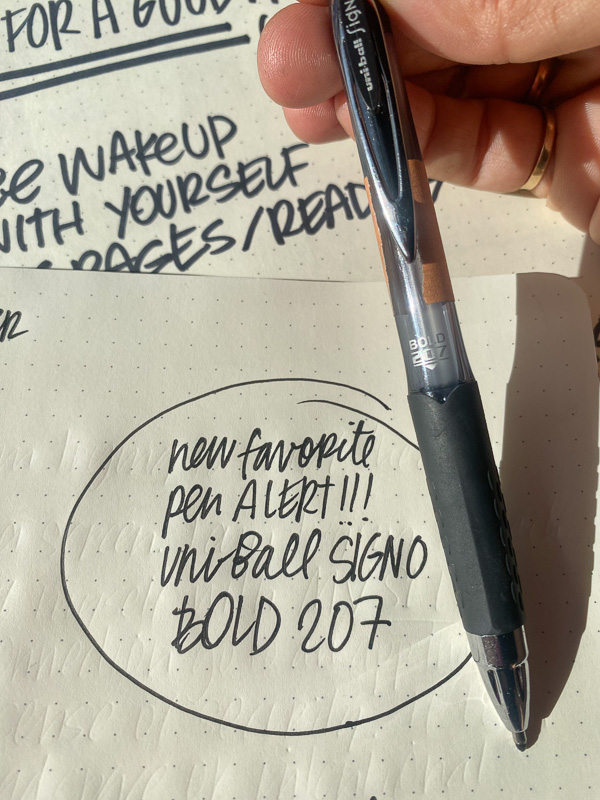 FOR A GOOD
WAKEUP
WITH YOURSELF
PAGES/READ
uni-ball Signo
BOLD
207
new favorite
pen ALERT!!!
uni-Ball SIGNO
BOLD 207